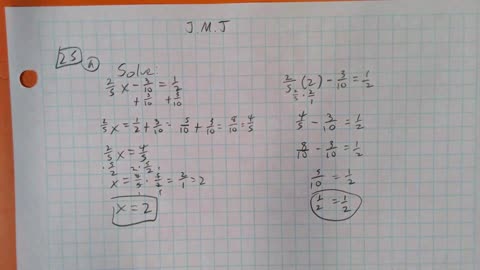 J.M.J
25 a
Solve:
2/5 x - 3/10 = 1/2
+ 3/10 + 3/10
2/5 x = 1/2 + 3/10 = 5/10 + 3/10 = 8/10 = 4/5
2/5 x = 4/5
· 5/2 · 5/2
x = 4/5 · 5/2 = 2/1 = 2
x = 2
2/5 (2) - 3/10 = 1/2
2/5 · 2/1
4/5 - 3/10 = 1/2
8/10 - 3/10 = 1/2
5/10 = 1/2
1/2 = 1/2